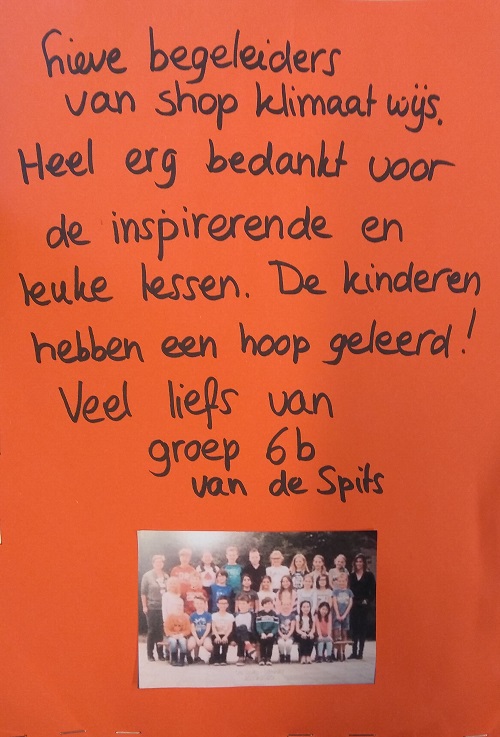 Lieve begeleiders
van shop klimaat wijs.
Heel erg bedankt voor
de inspirerende en
leuke lessen. De kinderen
hebben een hoop geleerd!
Veel liefs van
groep 6b
van de Spits